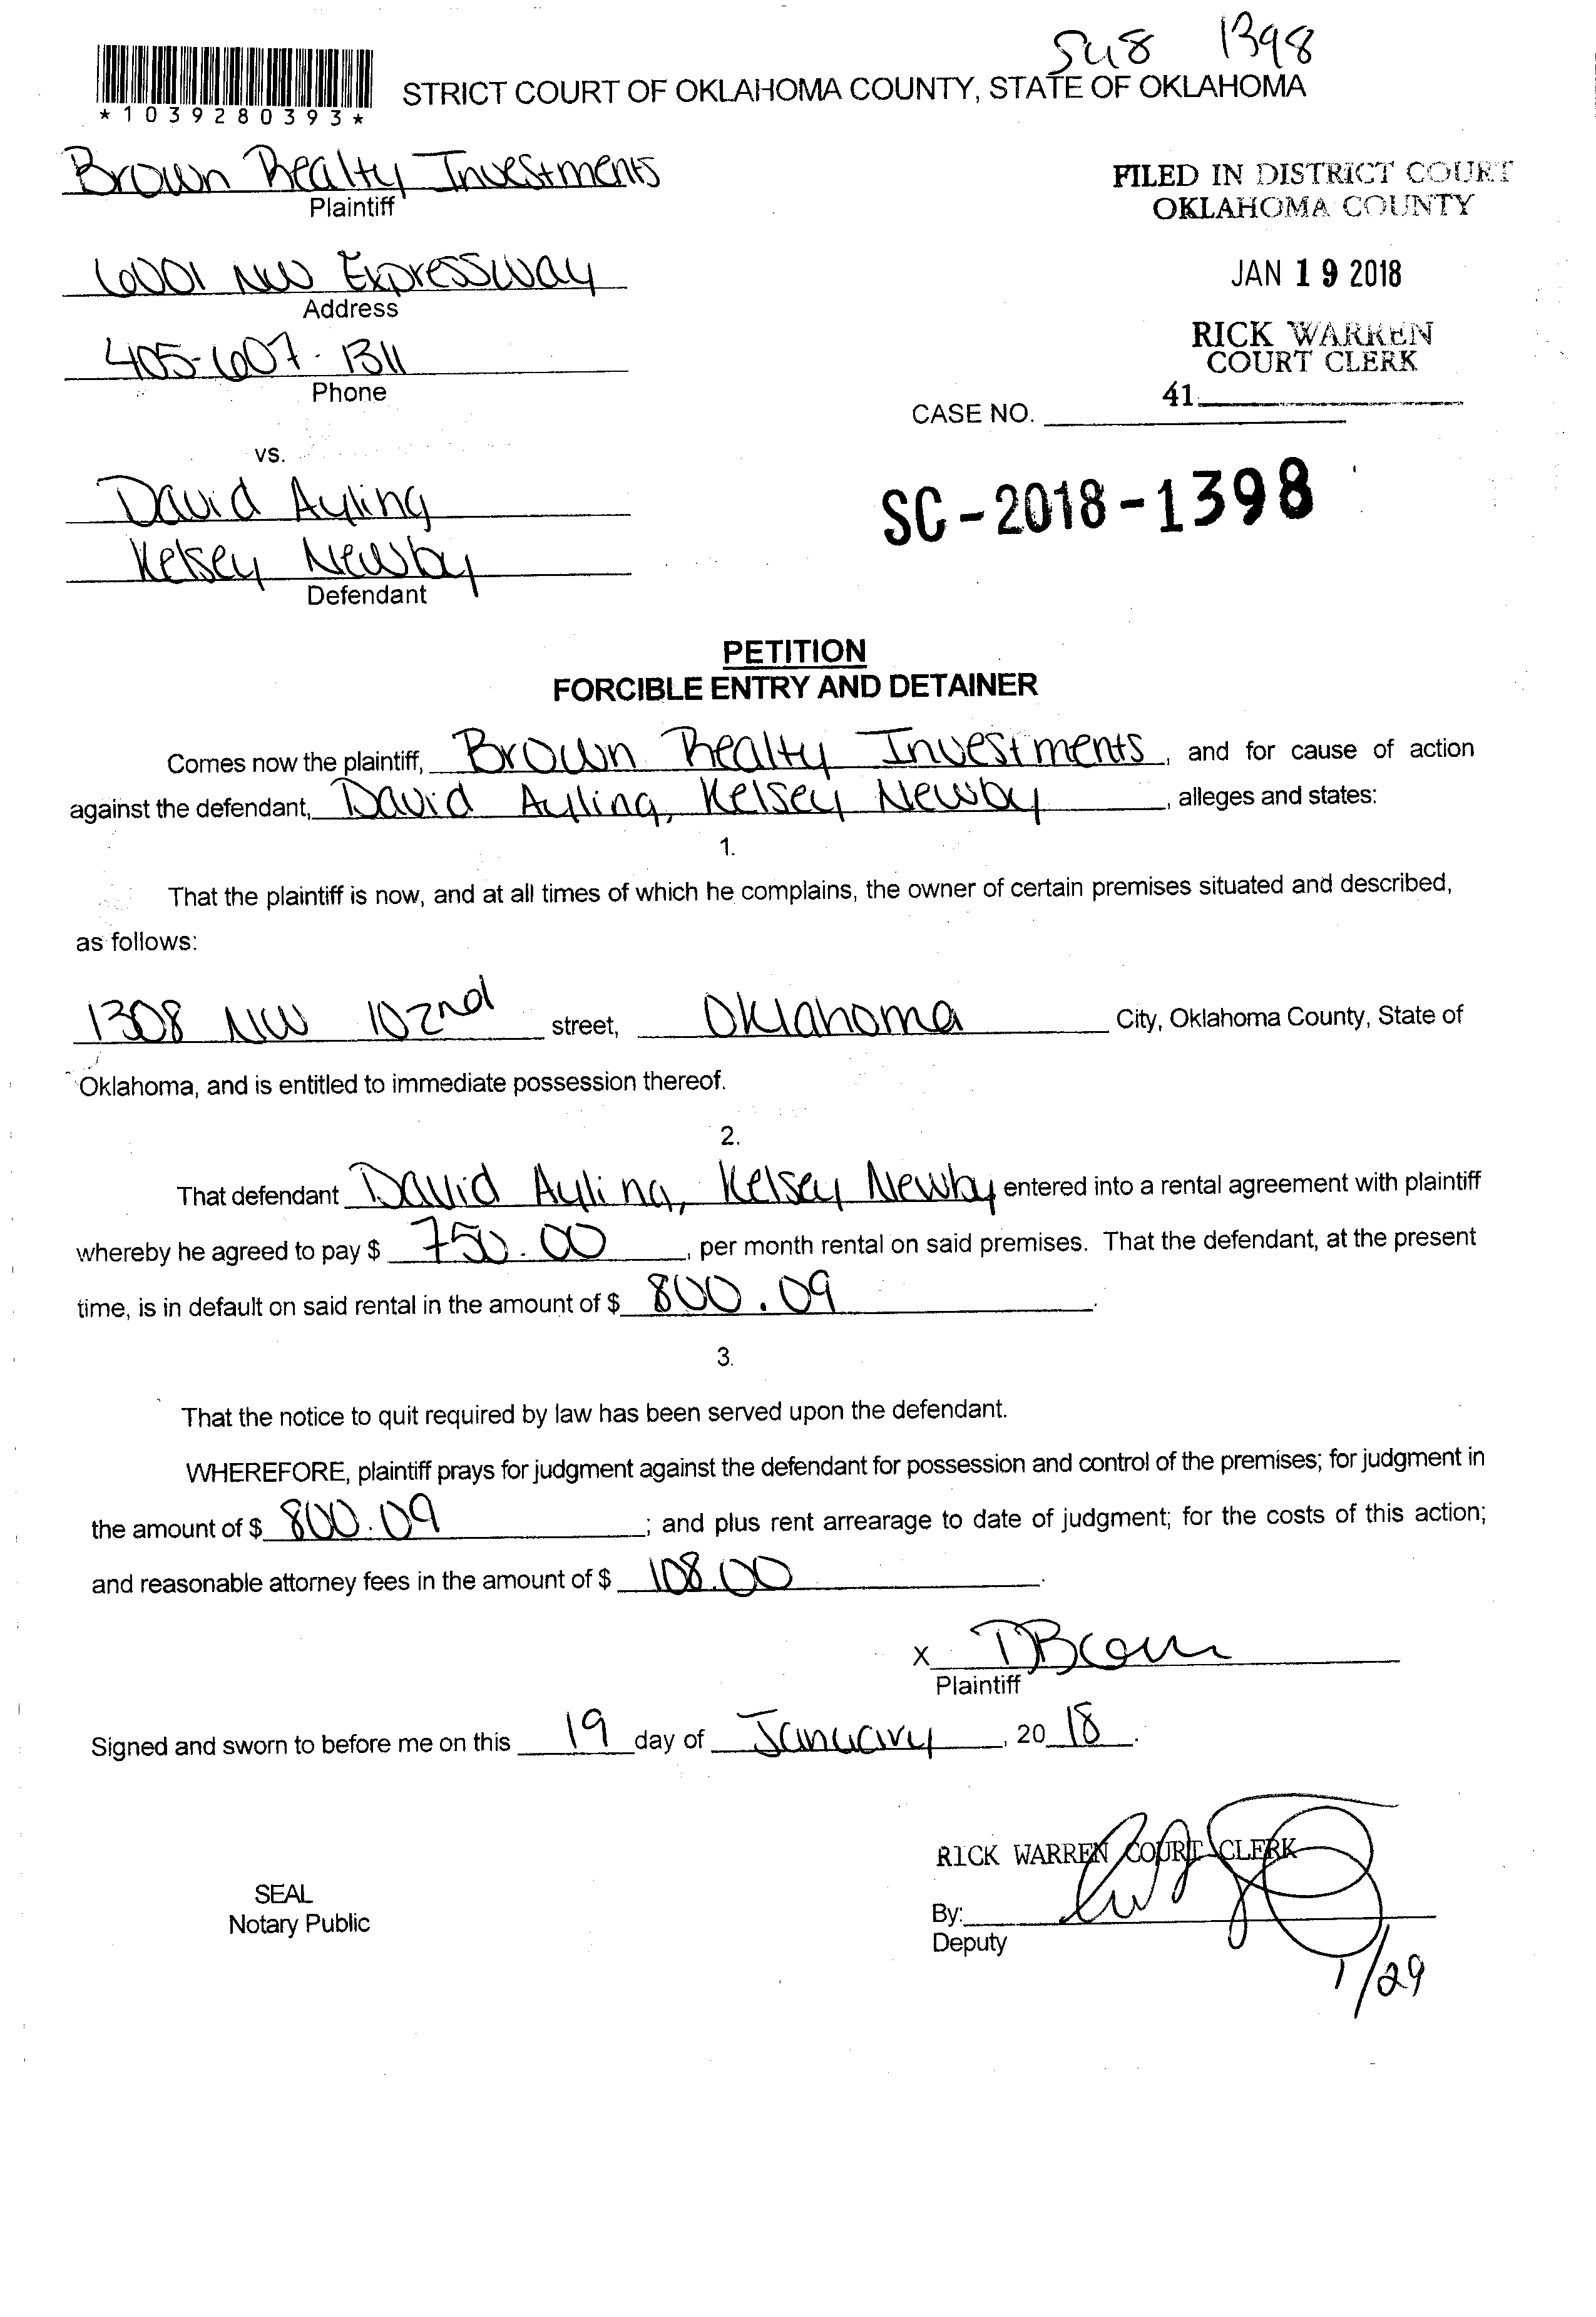 1398
*1039280393*
STRICT COURT OF OKLAHOMA COUNTY, STATE OF OKLAHOMA
Brown Realty Investments
Plaintiff
FILED IN DISTRICT COURT
OKLAHOMA COUNTY
6001 NW Expressway
Address
JAN 19 2018
405-607-1311
Phone
RICK WARREN
COURT CLERK
41
CASE NO.
vs.
David Ayling
Kelsey Newby
Defendant
SC-2018-1398
PETITION
FORCIBLE ENTRY AND DETAINER
Comes now the plaintiff, Brown Realty Investments, and for cause of action
against the defendant, David Ayling, Kelsey Newby, alleges and states:
1.
That the plaintiff is now, and at all times of which he complains, the owner of certain premises situated and described,
as follows:
1308 NW 102nd street, Oklahoma City, Oklahoma County, State of
Oklahoma, and is entitled to immediate possession thereof.
2.
That defendant David Ayling, Kelsey Newby entered into a rental agreement with plaintiff
whereby he agreed to pay $ 750.00, per month rental on said premises. That the defendant, at the present
time, is in default on said rental in the amount of $ 800.09.
3.
That the notice to quit required by law has been served upon the defendant.
WHEREFORE, plaintiff prays for judgment against the defendant for possession and control of the premises; for judgment in
the amount of $ 800.09; and plus rent arrearage to date of judgment; for the costs of this action;
and reasonable attorney fees in the amount of $ 108.00.
X DBrown
Plaintiff
Signed and sworn to before me on this 19 day of January, 2018.
RICK WARREN COURT CLERK
SEAL
Notary Public
By:
Deputy
1/29